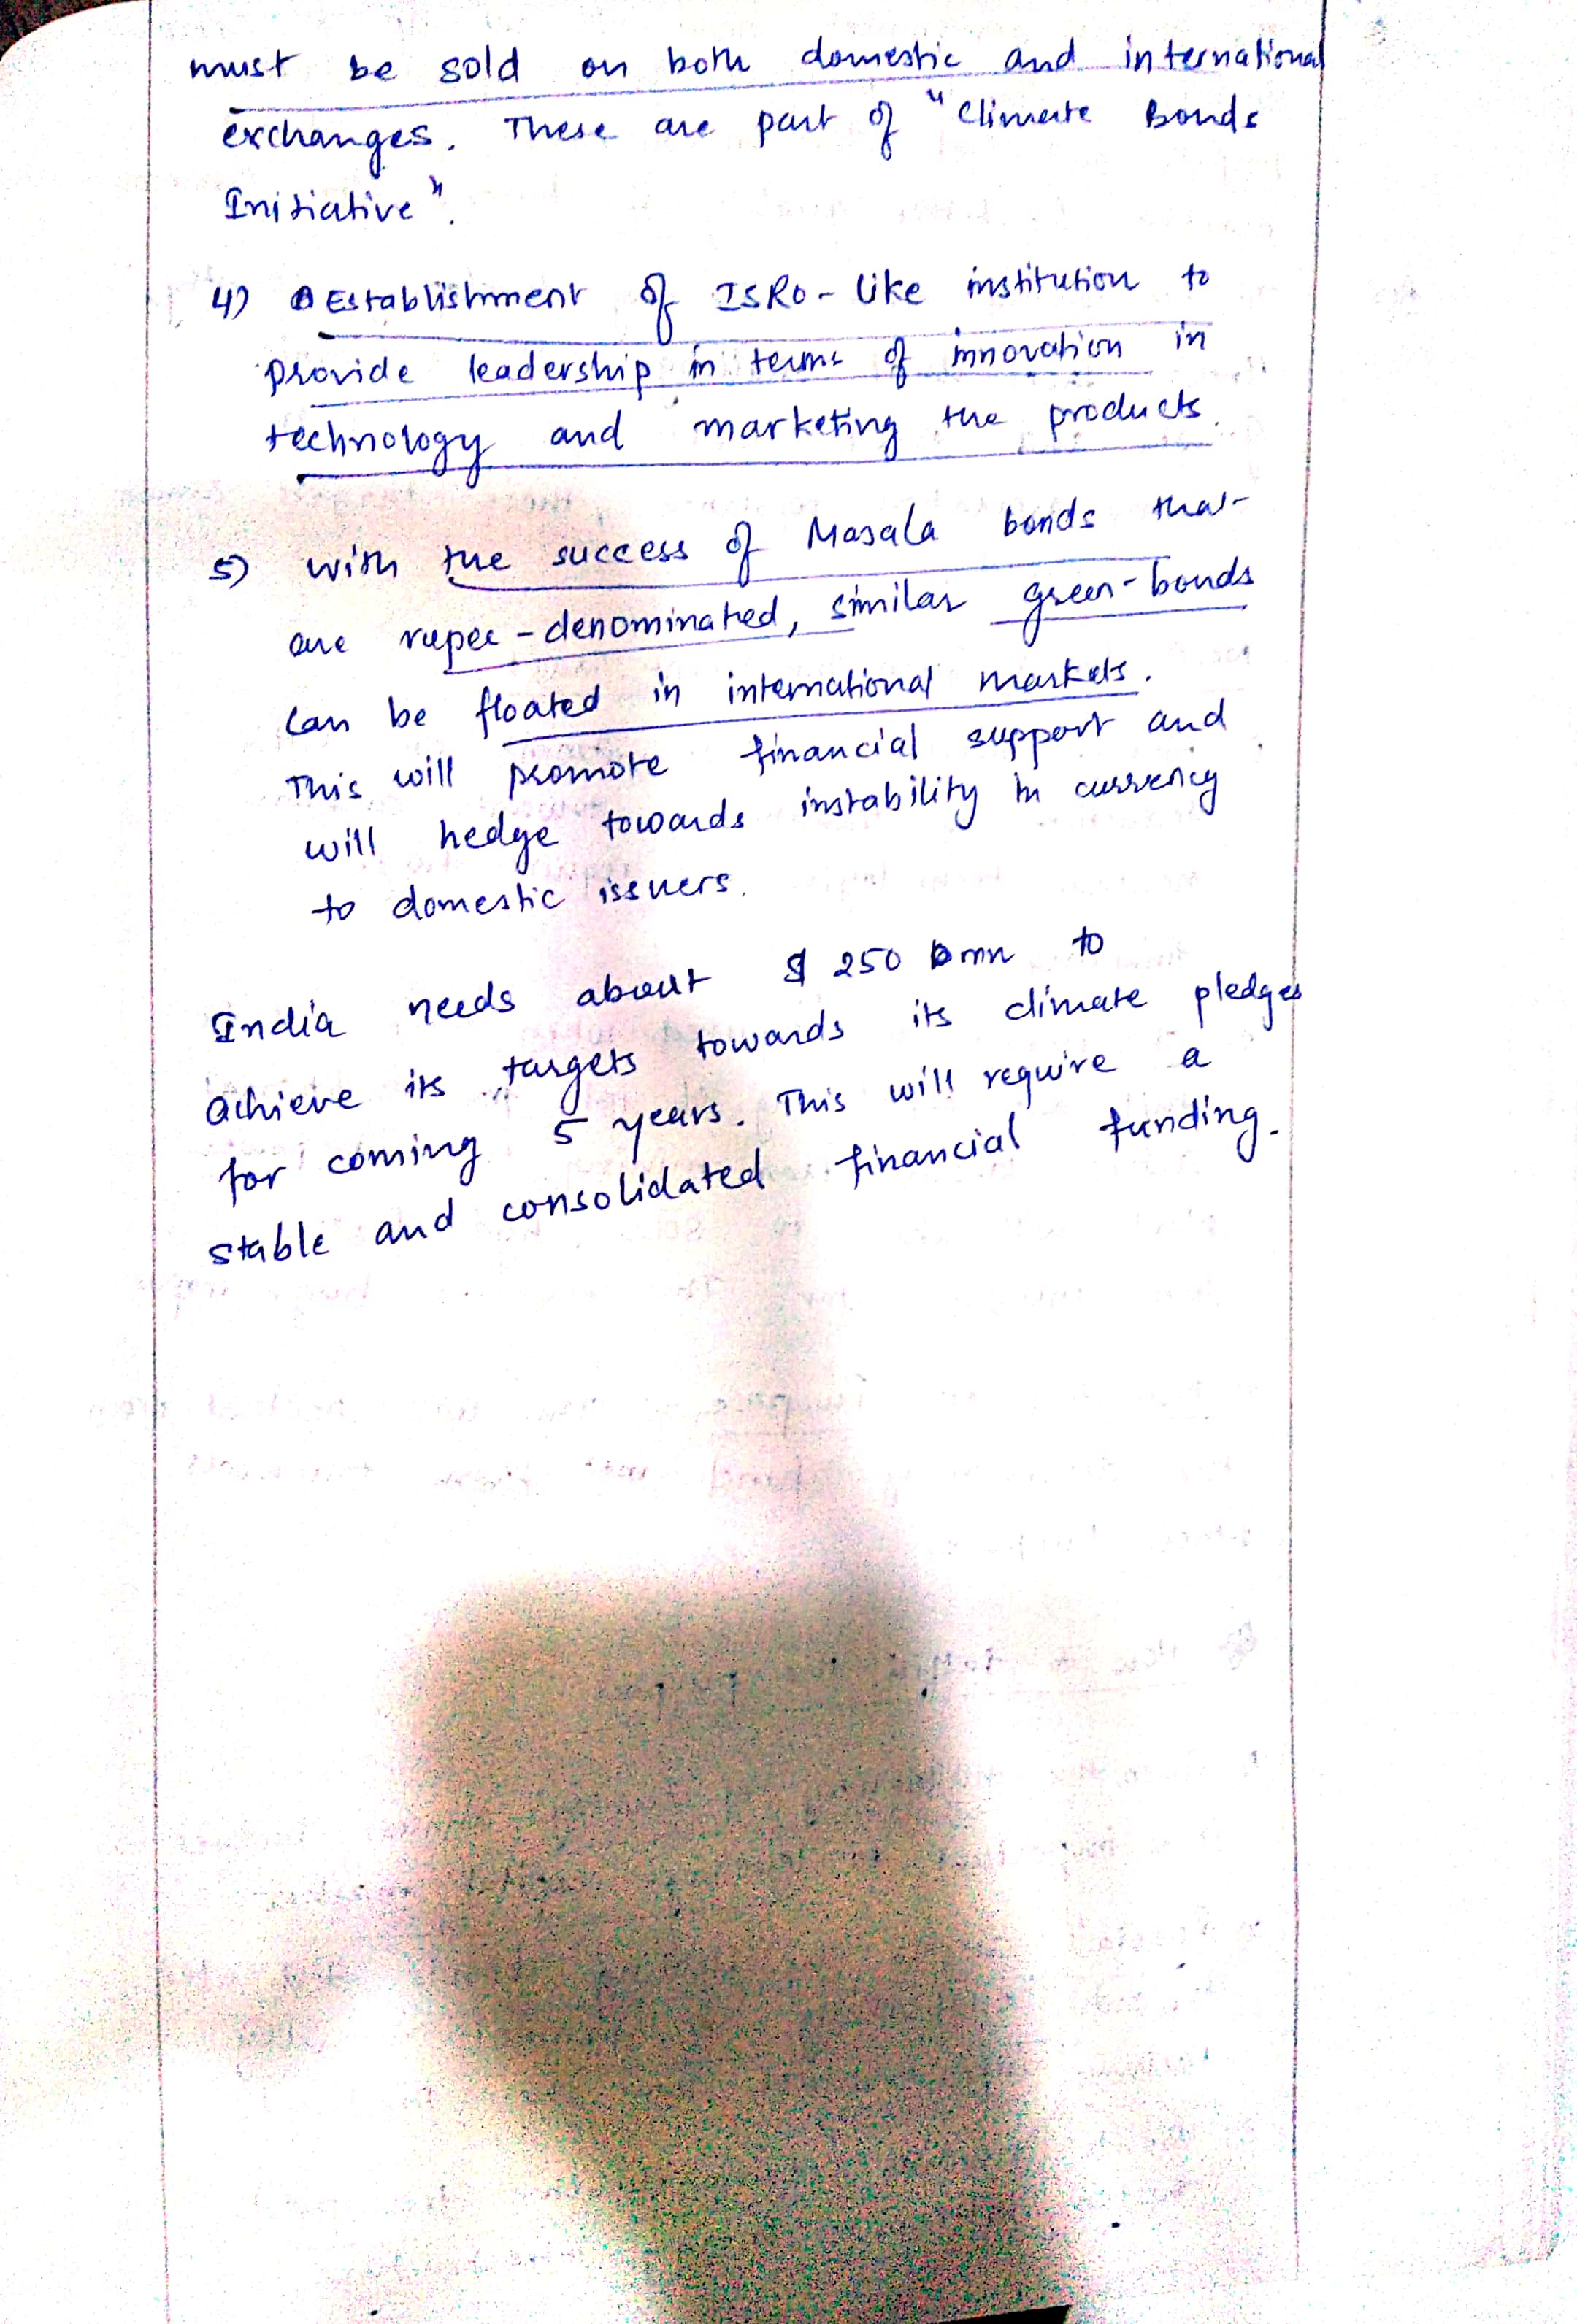 must be sold on both domestic and international
exchanges. These are part of "Climate Bonds
Initiative".
4) Establishment of ISRO-like institution to
provide leadership in terms of innovation in
technology and marketing the products.
5) with the success of Masala bonds that
are rupee-denominated, similar green-bonds
can be floated in international markets.
This will promote financial support and
will hedge towards instability in currency
to domestic issuers.
India needs about $ 250 mn to
achieve its targets towards its climate pledges
for coming 5 years. This will require a
stable and consolidated financial funding.